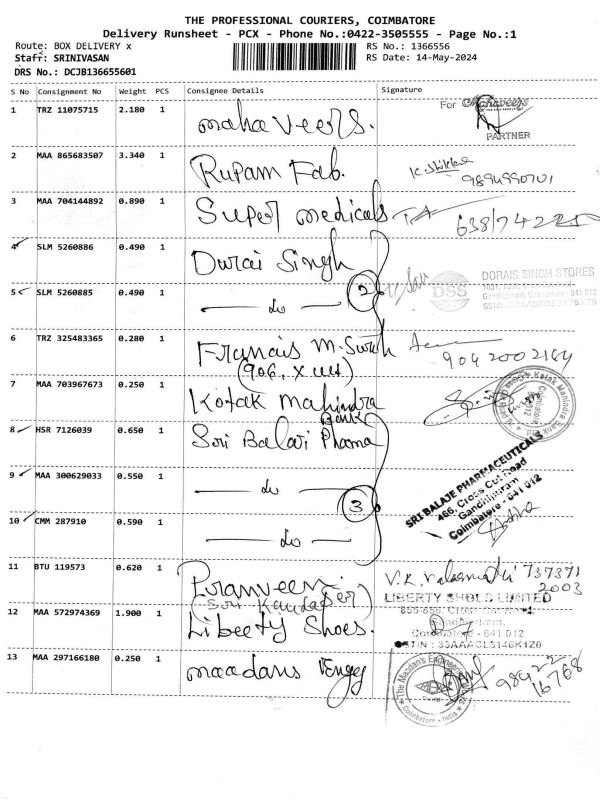 THE PROFESSIONAL COURIERS, COIMBATORE
Delivery Runsheet - PCX - Phone No.:0422-3505555 - Page No.:1
Route: BOX DELIVERY x RS No.: 1366556
Staff: SRINIVASAN RS Date: 14-May-2024
DRS No.: DCJB136655601
S No Consignment No Weight PCS Consignee Details Signature
1 TRZ 11075715 2.180 1 mahaveers. For Mahaveers
PARTNER
2 MAA 865683507 3.340 1 Rupam Fab. 9894990701
3 MAA 704144892 0.890 1 Super medicals
4 SLM 5260886 0.490 1 Durai Singh DORAIS SINGH STORES
DSS
5 SLM 5260885 0.490 1 do 2
6 TRZ 325483365 0.280 1 Francis M. Suresh 9042002164
7 MAA 703967673 0.250 1 Kotak Mahindra Bank
8 HSR 7126039 0.650 1 Sri Balaji Pharma SRI BALAJE PHARMACEUTICALS
466, Cross Cut Road
Gandhipuram
Coimbatore - 641 012
9 MAA 300629033 0.550 1 do 3
10 CMM 287910 0.590 1 do
11 BTU 119573 0.620 1 Pranveen 737371
2003
12 MAA 572974369 1.900 1 Liberty Shoes. LIBERTY SHOES LIMITED
Coimbatore - 641 012
13 MAA 297166180 0.250 1 maadans Engg
Coimbatore - India